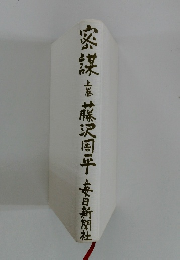 密謀
上巻
藤沢周平
毎日新聞社